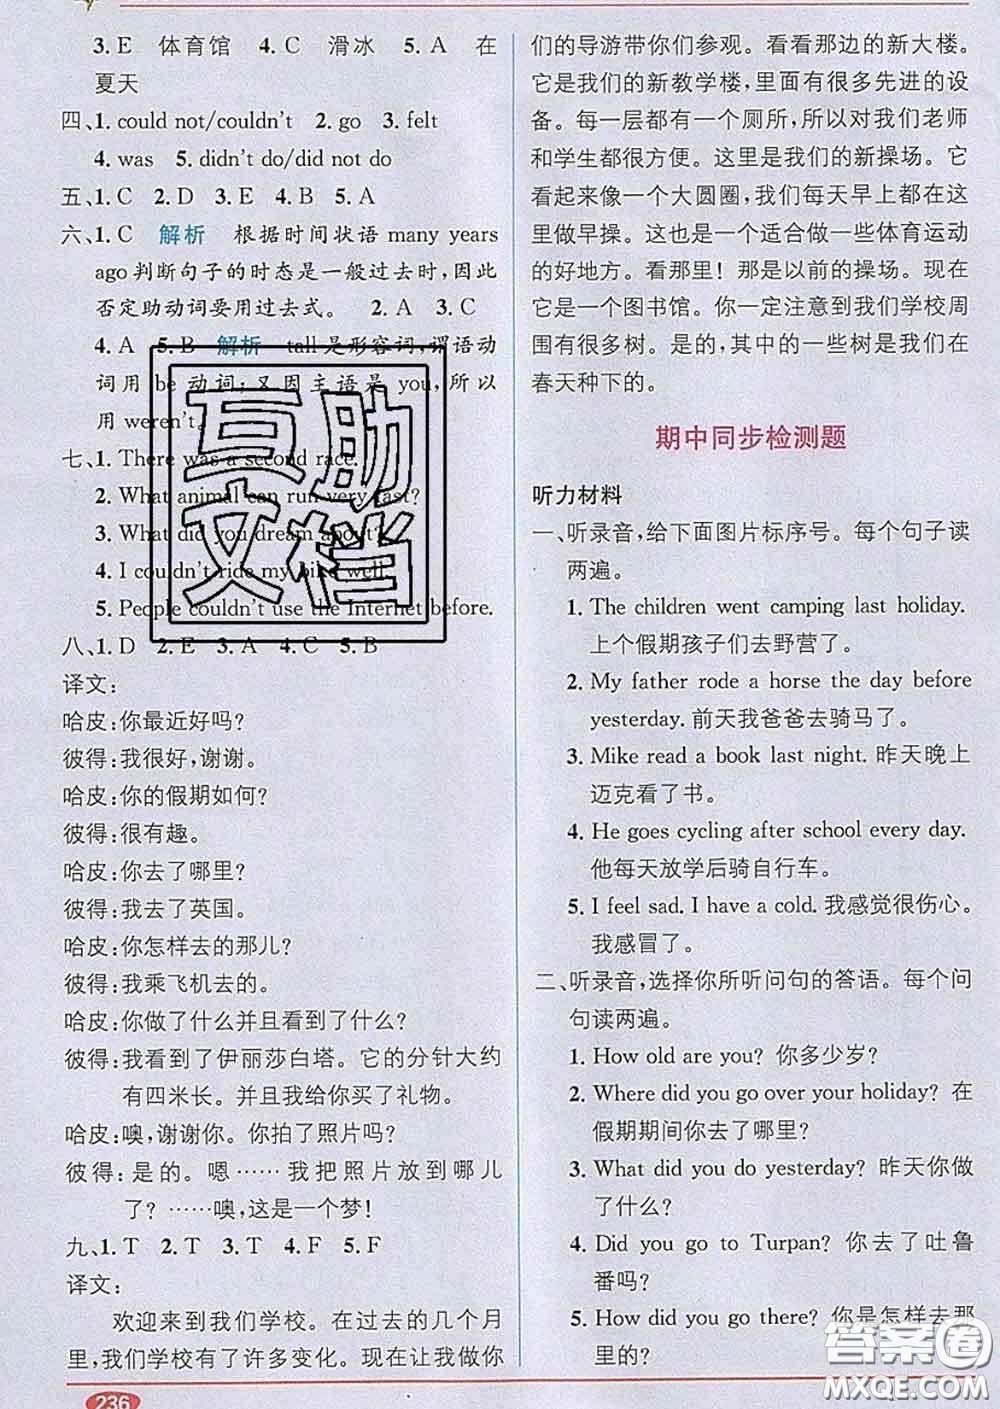 3. E 体育馆 4. C 滑冰 5. A 在
夏天
四、1. could not/couldn't 2. go 3. felt
4. was 5. didn't do/did not do
五、1. C 2. D 3. E 4. B 5. A
六、1. C 解析 根据时间状语 many years
ago 判断句子的时态是一般过去时,因此
否定助动词要用过去式。 2. A 3. C
4. A 5. B 解析 tall 是形容词,谓语动
词用 be 动词;又因主语是 you,所以
用 weren't。
七、1. There was a second race.
2. What animal can run very fast?
3. What did you dream about?
4. I couldn't ride my bike well.
5. People couldn't use the Internet before.
八、1. D 2. E 3. A 4. C 5. B
译文:
哈皮:你最近好吗?
彼得:我很好,谢谢。
哈皮:你的假期如何?
彼得:很有趣。
哈皮:你去了哪里?
彼得:我去了英国。
哈皮:你怎样去的那儿?
彼得:我乘飞机去的。
哈皮:你做了什么并且看到了什么?
彼得:我看到了伊丽莎白塔。它的分针大约
有四米长。并且我给你买了礼物。
哈皮:噢,谢谢你。你拍了照片吗?
彼得:是的。嗯……我把照片放到哪儿
了?……噢,这是一个梦!
九、1. T 2. T 3. T 4. F 5. F
译文:
欢迎来到我们学校。在过去的几个月
里,我们学校有了许多变化。现在让我做你
们的导游带你们参观。看看那边的新大楼。
它是我们的新教学楼,里面有很多先进的设
备。每一层都有一个厕所,所以对我们老师
和学生都很方便。这里是我们的新操场。它
看起来像一个大圆圈,我们每天早上都在这
里做早操。这也是一个适合做一些体育运动
的好地方。看那里!那是以前的操场。现在
它是一个图书馆。你一定注意到我们学校周
围有很多树。是的,其中的一些树是我们在
春天种下的。
期中同步检测题
听力材料
一、听录音,给下面图片标序号。每个句子读
两遍。
1. The children went camping last holiday.
上个假期孩子们去野营了。
2. My father rode a horse the day before
yesterday. 前天我爸爸去骑马了。
3. Mike read a book last night. 昨天晚上
迈克看了书。
4. He goes cycling after school every day.
他每天放学后骑自行车。
5. I feel sad. I have a cold. 我感觉很伤心。
我感冒了。
二、听录音,选择你所听问句的答语。每个问
句读两遍。
1. How old are you? 你多少岁?
2. Where did you go over your holiday? 在
假期期间你去了哪里?
3. What did you do yesterday? 昨天你做
了什么?
4. Did you go to Turpan? 你去了吐鲁
番吗?
5. How did you go there? 你是怎样去那
里的?
236
互助
文档
答案圈
MXQE.COM